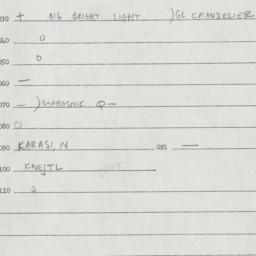 030 + BIG BRIGHT LIGHT )GL CHANDELIER
040 0
050 0
060 —
070 — )SGABASNIC Q—
080 0
090 KARASI, N 091 —
100 KNEJTL
110 0